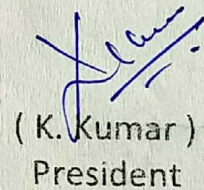 ( K. Kumar )
President